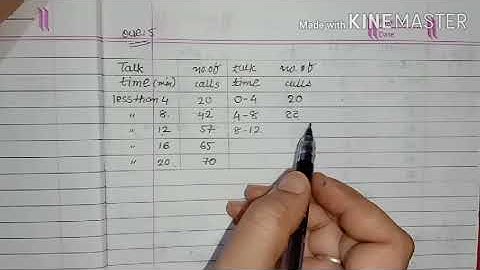 Made with KINEMASTER
Date
Ques
Talk no. of talk no. of
time (min) calls time calls
less than 4 20 0-4 20
" 8 42 4-8 22
" 12 57 8-12
" 16 65
" 20 70